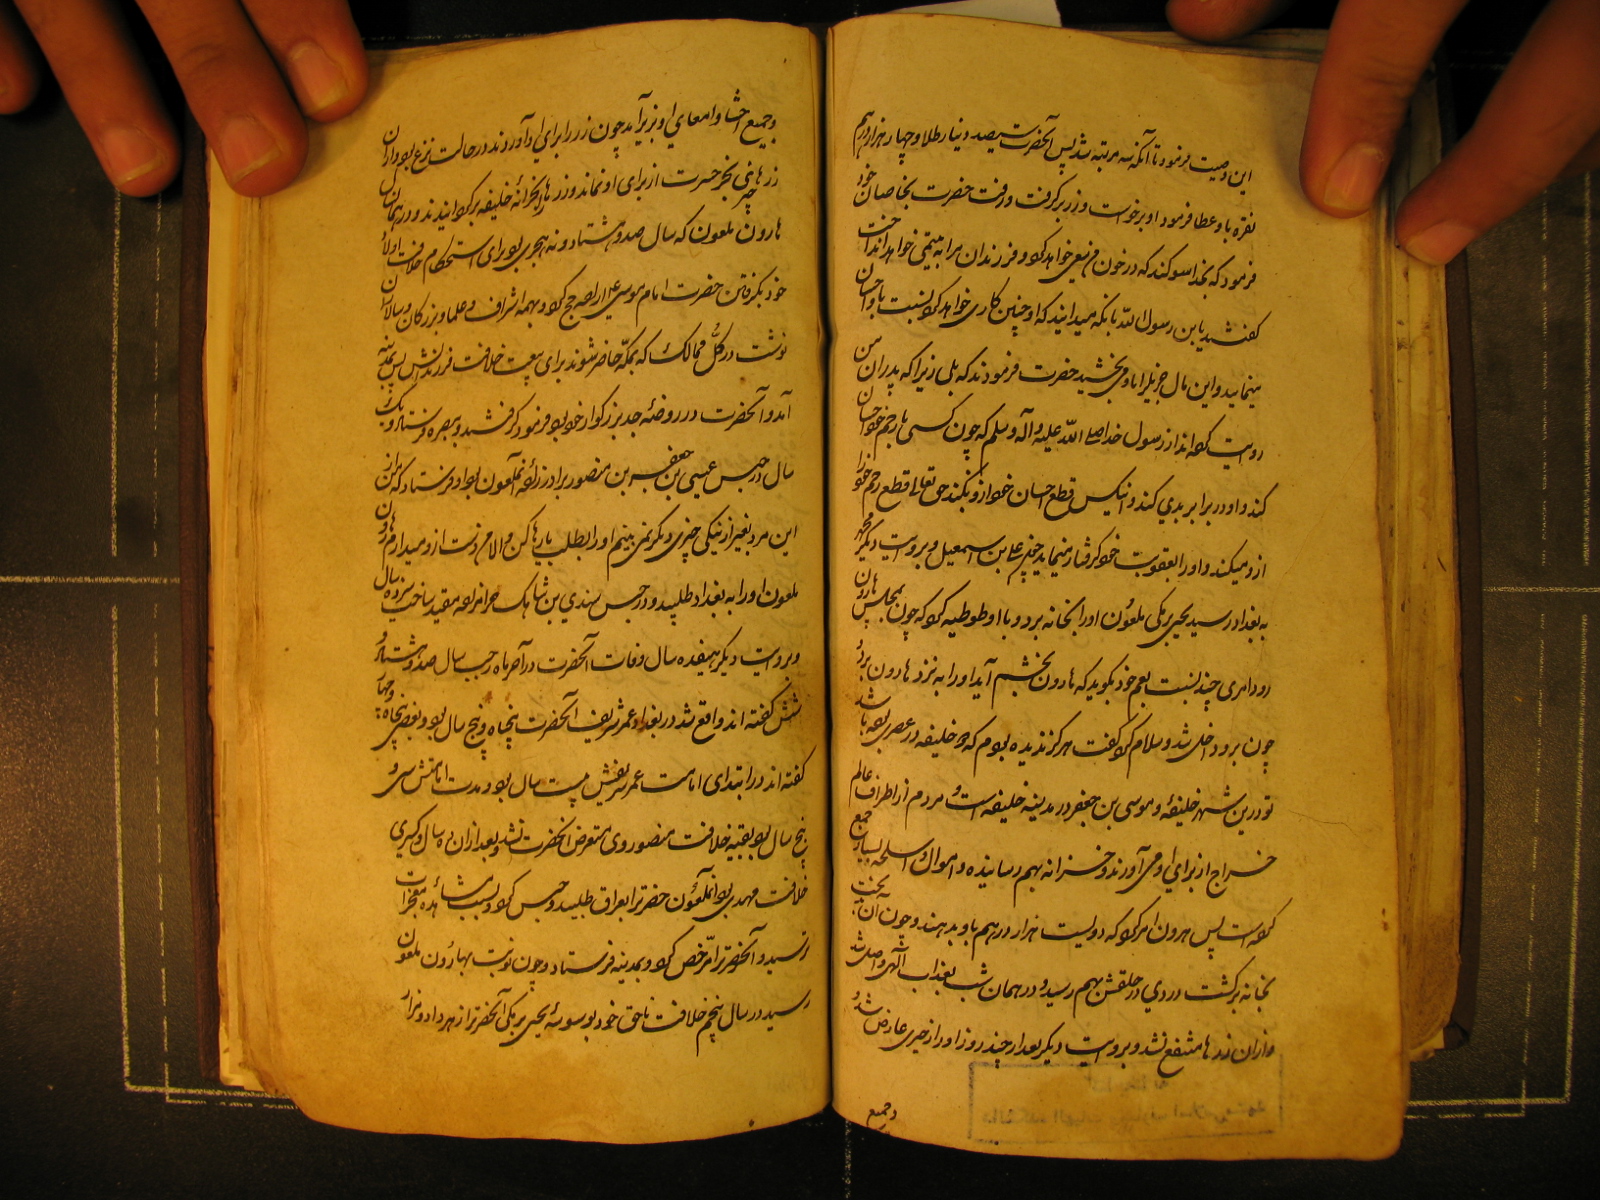 این وصیت فرمود تا آنکه سه مرتبه شد پس آنحضرت سیصد دینار طلا و چهار هزار درهم
نقره باو عطا فرمود او برخواست و زر برگرفت و رفت حضرت بخاصان خود
فرمود که بخدا سوکند که در خون من سعی خواهد کرد و فرزندان مرا به یتیمی خواهد انداخت
گفتند یابن رسول الله بآنکه میدانید که او چنین کاری خواهد کرد نسبت باو احسان
مینمایید و این مال جزیل را باو می بخشید حضرت فرمودند که بلی زیرا که پدران من
روایت کرده اند از رسول خدا صلی الله علیه و آله وسلم که چون کسی با رحم خود احسان
کند و او در برابر بدی کند و اینکس قطع احسان خود را ازو بکند حق تعالی قطع رحم خود را
ازو میکند و او را بعقوبت خود گرفتار مینماید چون علی بن اسمعیل و بروایت دیگر محمد
به بغداد رسید یحیی برمکی ملعون او را بخانه برد و با او طوطیه کرد که چون بمجلس هارون
رود امری چند نسبت بعم خود بگوید که هارون بخشم آید او را به نزد هارون برد
چون برو داخل شد و سلام کرد گفت هرگز ندیده بودم که دو خلیفه در عصری بوده باشد
تو درین شهر خلیفهٔ و موسی بن جعفر در مدینه خلیفه است و مردم از اطراف عالم
خراج از برای او می آورند و خزانه بهم رسانیده و اموال و اسلحه بسیار جمع
کرده است پس هرون امر کرد که دویست هزار درهم باو بدهند و چون آن بدبخت
بخانه برگشت دردی در حلقش بهم رسید و در همان شب بعذاب الهی واصل شد
و از آن زرها منتفع نشد و بروایت دیگر بعد از چند روز او را زحیری عارض شد و
وجمیع
وجمیع احشا و امعای او بزیر آمد چون زر را برای او آوردند در حالت نزع بود از آن
زرها بجز حسرت از برای او نماند و زرها را بخزانه خلیفه برگردانیدند و در همان سال
هارون ملعون که سال صد و هشتاد و نه هجری بود برای استحکام خلافت اولاد
خود بگرفتن حضرت امام موسی ع ارادهٔ حج کرد و بهمه اشراف و علما و بزرگان و سالاران
نوشت در کل ممالک که بمکه حاضر شوند برای بیعت خلافت فرزندانش پس بمدینه
آمد و آنحضرت در روضهٔ جد بزرگوار خود بود فرمود گرفتند و ببصره فرستاد و یک
سال در حبس عیسی بن جعفر بن منصور برادر زاده آنملعون بود او فرستاد که من از
این مرد بغیر از نیکی چیزی دیگر نمی بینم او را بطلب یا رها کن و الا من دست ازو میدارم هارون
ملعون او را به بغداد طلبید و در حبس سندی بن شاهک حرامزاده مقید ساخت سیزده سال
و بروایت دیگر هیفده سال وفات آنحضرت در آخر ماه رجب سال صد و هشتاد و
شش گفته اند واقع شد در بغداد عمر شریف آنحضرت پنجاه و پنج سال بود و بعضی پنجاه و چهار
گفته اند در ابتدای امامت عمر شریفش بیست سال بود و مدت امامتش سی و
پنج سال بود بقیه خلافت منصور وی متعرض آنحضرت نشد و بعد از آن ده سال و کسری
خلافت مهدی بود آنملعون حضرت را بعراق طلبید و حبس کرد و بسبب مشاهده معجزات
ترسید و آنحضرت را مرخص کرد و بمدینه فرستاد و چون نوبت بهارون ملعون
رسید در سال پنجم خلافت ناحق خود بوسوسهٔ یحیی برمکی آنحضرت را زهر داد و هزار